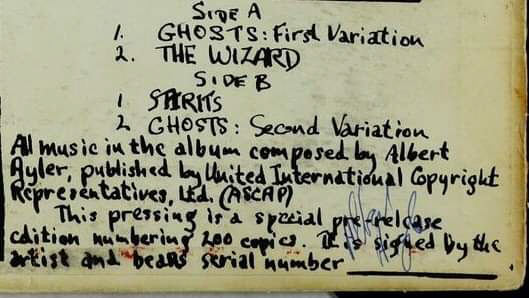 SIDE A
1. GHOSTS: First Variation
2. THE WIZARD
SIDE B
1 SPIRITS
2 GHOSTS: Second Variation
All music in the album composed by Albert
Ayler, published by United International Copyright
Representatives, Ltd. (ASCAP)
This pressing is a special pre-release
edition numbering 200 copies. It is signed by the
artist and bears serial number